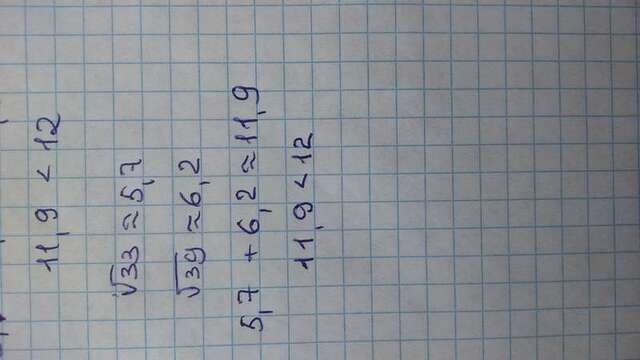 11,9 < 12
√33 ≈ 5,7
√39 ≈ 6,2
5,7 + 6,2 ≈ 11,9
11,9 < 12